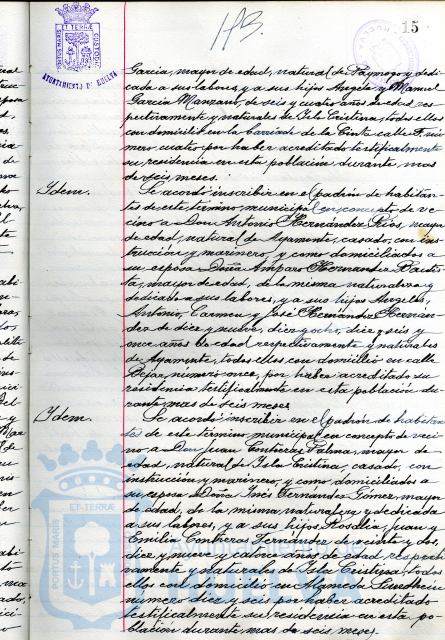 113.
15
PORTUS MARIS ET TERRÆ CUSTODIA
AYUNTAMIENTO DE HUELVA
Garcia, mayor de edad, natural de Paymogo y dedi-
cada a sus labores, y a sus hijos Angela y Manuel
Garcia Manzano, de seis y cuatro años de edad res-
pectivamente y naturales de Isla Cristina, todos ellos
con domicilio en la barriada de la Cinta calle F. nú-
mero cuatro por haber acreditado testificalmente
su residencia en esta población durante mas
de seis meses.
Ydem.
Se acordó inscribir en el padrón de habitan-
tes de este término municipal en concepto de ve-
cino a Don Antonio Hernández Rios, mayor
de edad, natural de Ayamonte, casado, con ins-
trucción y marinero, y como domiciliados a
su esposa Doña Amparo Hernandez Bautis-
ta, mayor de edad, de la misma naturaleza y
dedicada a sus labores, y a sus hijos Angeles,
Antonio, Carmen y José Hernández Hernán-
dez de diez y nueve, diez y ocho, diez y seis y
once años de edad respectivamente y naturales
de Ayamonte, todos ellos con domicilio en calle
Bejar, número once, por haber acreditado su
residencia testificalmente en esta población du-
rante mas de seis meses.
Ydem.
Se acordó inscribir en el padrón de habitan-
tes de este término municipal en concepto de veci-
no a Don Juan Contreras Palma, mayor de
edad, natural de Isla Cristina, casado, con
instrucción y marinero, y como domiciliados a
su esposa Doña Inés Fernandez Gómez, mayor
de edad, de la misma naturaleza y dedicada
a sus labores, y a sus hijos Rosalia, Juan y
Emilio Contreras Fernández de veinte y dos,
diez y nueve y catorce años de edad respecti-
vamente y naturales de Isla Cristina, todos
ellos con domicilio en
número diez y seis por haber acreditado
testificalmente su residencia en esta po-
blación durante mas de seis meses.
PORTUS MARIS ET TERRÆ CUSTODIA
Ayuntamiento de
HUELVA